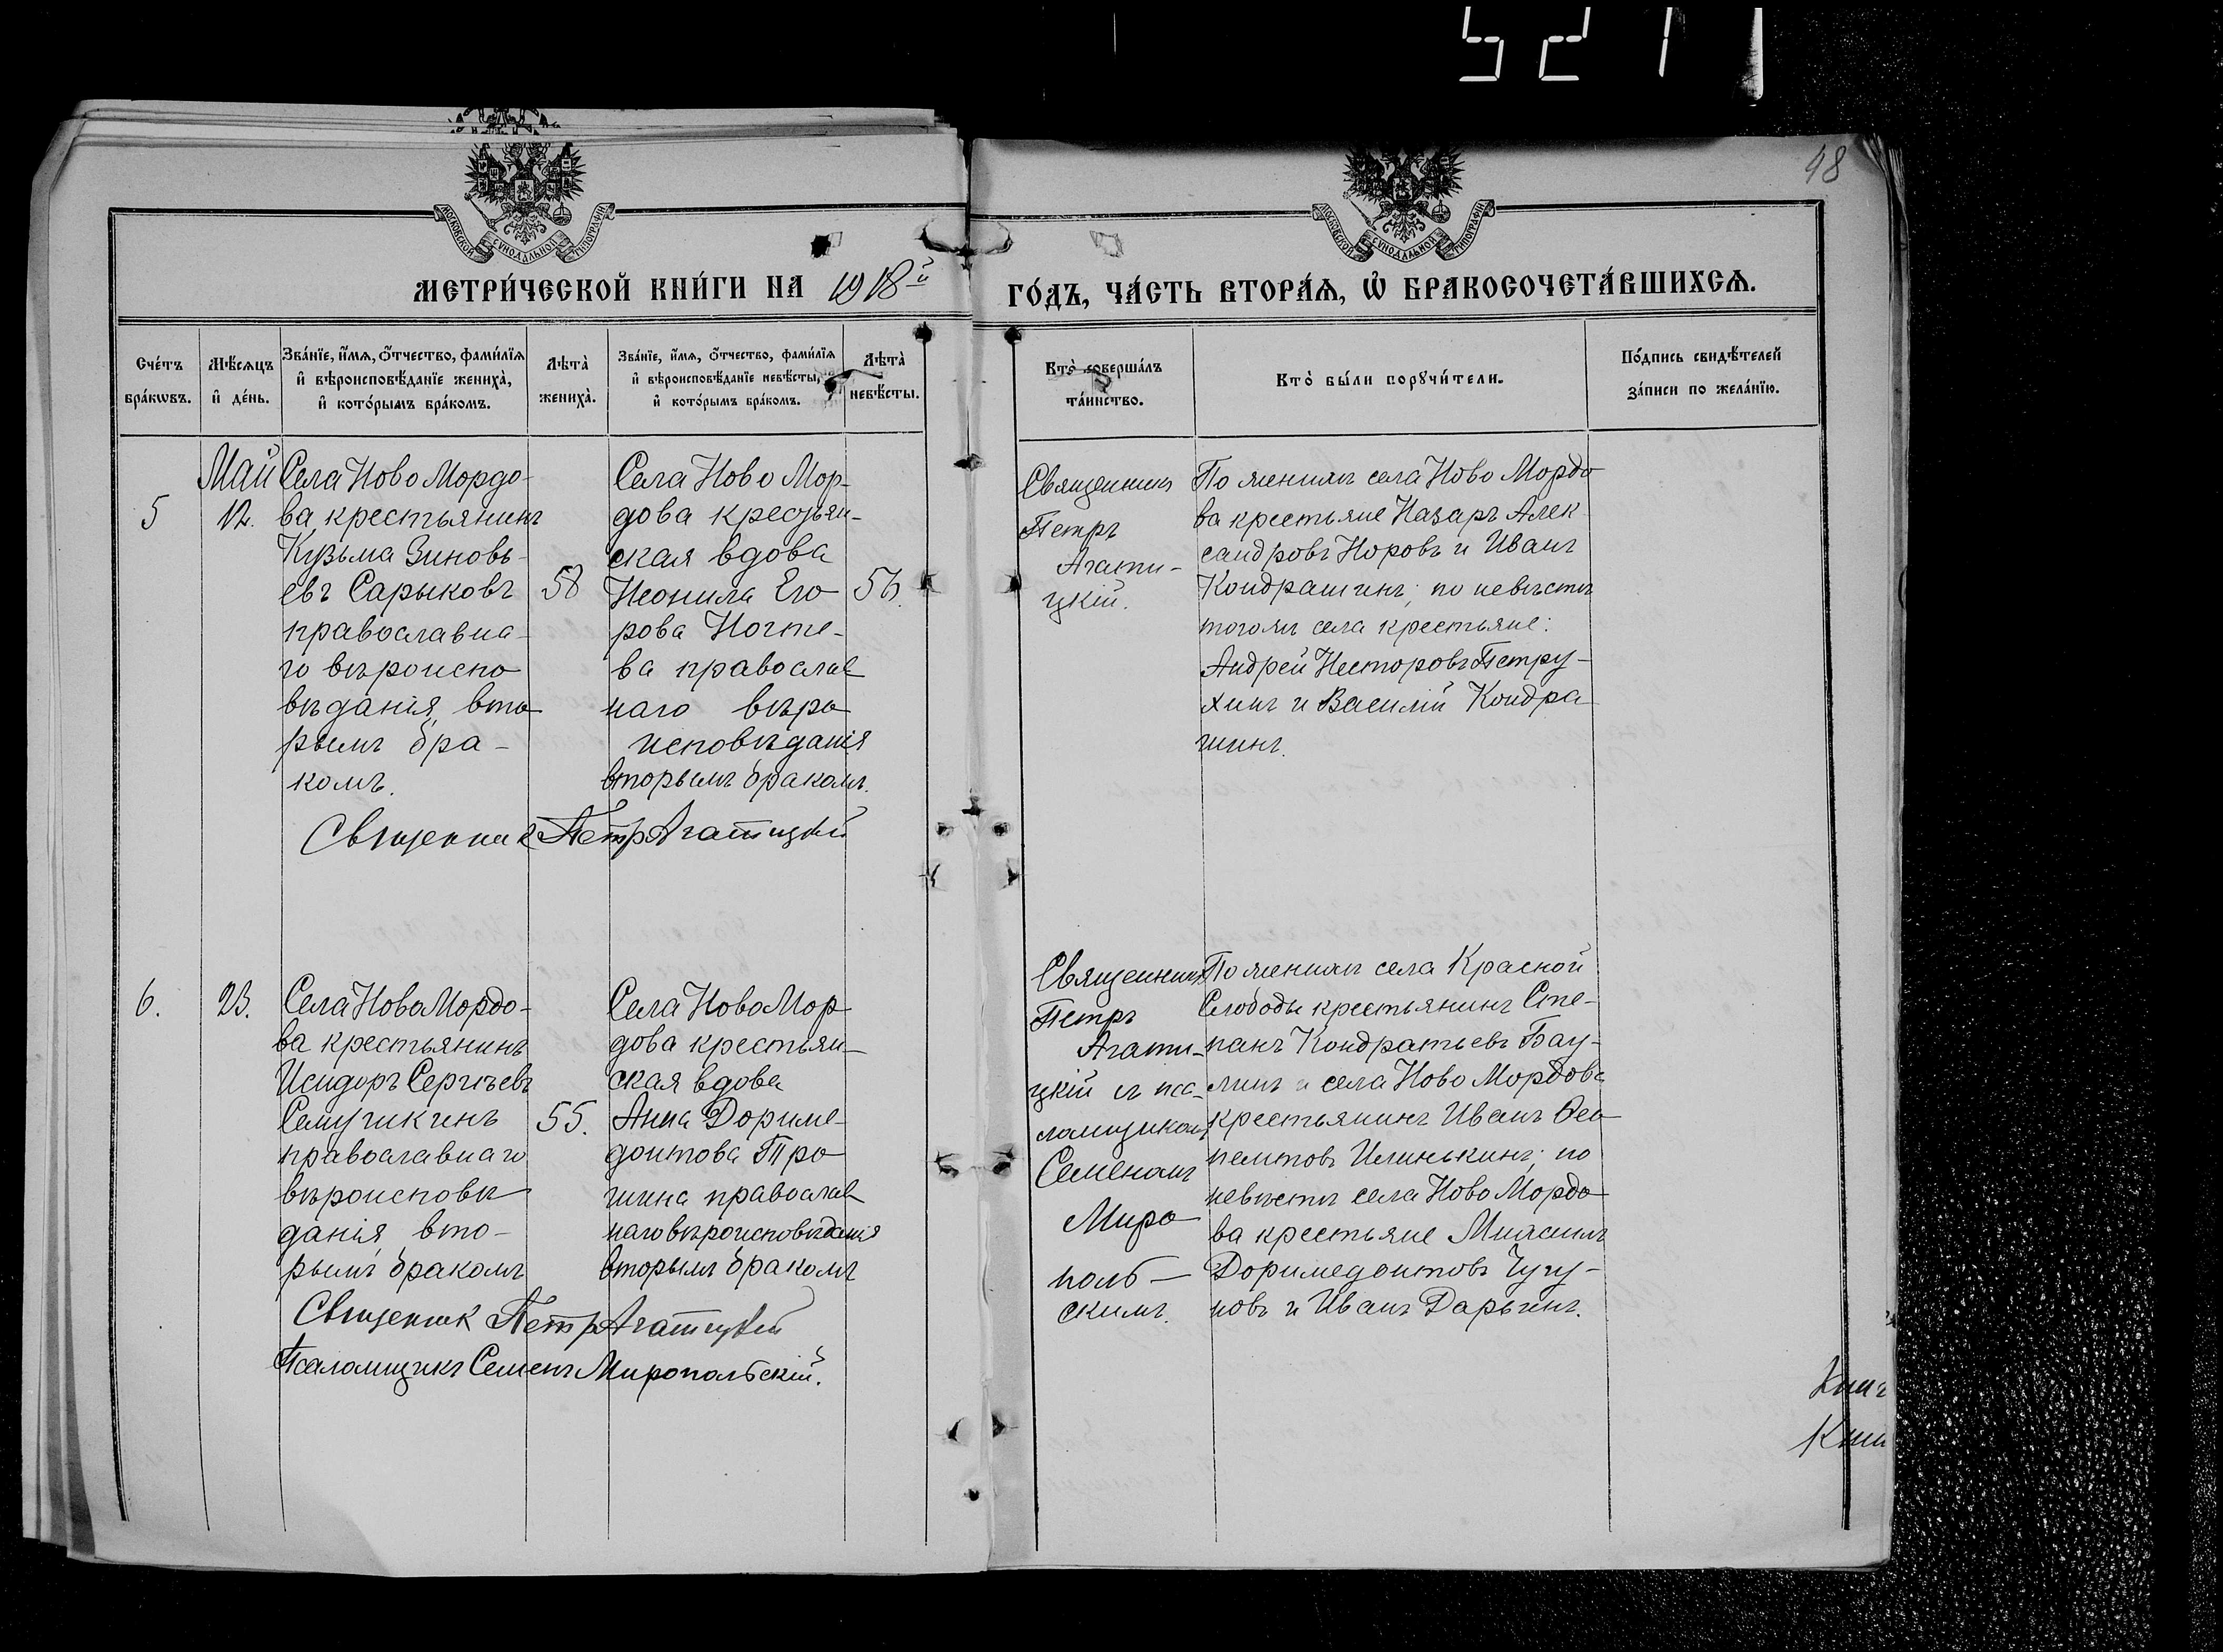 5271
48
МОСКОВСКОЙ СѴНОДАЛЬНОЙ ТИПОГРАФІИ
МОСКОВСКОЙ СѴНОДАЛЬНОЙ ТИПОГРАФІИ
МЕТРИ́ЧЕСКОЙ КНИ́ГИ НА 1918й
ГО́ДЪ, ЧА́СТЬ ВТОРА́Ѧ, Ѽ БРАКОСОЧЕТА́ВШИХСѦ.
Сче́тъ
бра́кѡвъ.
Мѣ́сѧцъ
и҆ де́нь.
Зва́нїе, и҆́мѧ, ѻ҆́тчество, фами́лїѧ
и҆ вѣроисповѣ́данїе жениха̀,
и҆ кото́рымъ бра́комъ.
Лѣта̀
жениха̀.
Зва́нїе, и҆́мѧ, ѻ҆́тчество, фами́лїѧ
и҆ вѣроисповѣ́данїе невѣ́сты,
и҆ кото́рымъ бра́комъ.
Лѣта̀
невѣ́сты.
Кто̀ соверша́лъ
та́инство.
Кто̀ бы́ли порꙋчи́тели.
По́дпись свидѣ́телей
за́писи по жела́нїю.
5
Май
12.
Села Ново Мордо-
ва крестьянинъ
Кузьма Зиновь-
евъ Сарыковъ
православна-
го вѣроиспо
вѣданія, вто
рымъ бра-
комъ.
58
Села Ново Мор-
дова крестьян-
ская вдова
Неонила Его
рова Ногте-
ва православ
наго вѣро
исповѣданія
вторымъ бракомъ.
56.
Священникъ
Петръ
Агати-
цкій.
По женихѣ села Ново Мордо
ва крестьяне Назаръ Алек
сандровъ Норовъ и Иванъ
Кондрашинъ; по невѣстѣ
тогожъ села крестьяне:
Андрей Несторовъ Петру-
хинъ и Василій Кондра
шинъ.
Священникъ Петр Агатицкій
6.
23.
Села Ново Мордо-
ва крестьянинъ
Исидоръ Сергѣевъ
Семушкинъ
православнаго
вѣроисповѣ
данія, вто-
рымъ бракомъ
55.
Села Ново Мор
дова крестьян-
ская вдова
Анна Дориме-
донтова Про
шина православ
наго вѣроисповѣданія
вторымъ бракомъ
Священникъ
Петръ
Агати-
цкій съ пса-
ломщикомъ
Семеномъ
Миро
поль-
скимъ.
По женихѣ села Красной
Слободы крестьянинъ Сте-
панъ Кондратьевъ Бау-
линъ и села Ново Мордова
крестьянинъ Иванъ Ѳео
пемптовъ Илинькинъ; по
невѣстѣ села Ново Мордо
ва крестьяне
Доримедонтовъ Чугу-
новъ и Иванъ Дарьинъ.
Священник Петр Агатицкій
Псаломщикъ Семенъ Миропольскій.